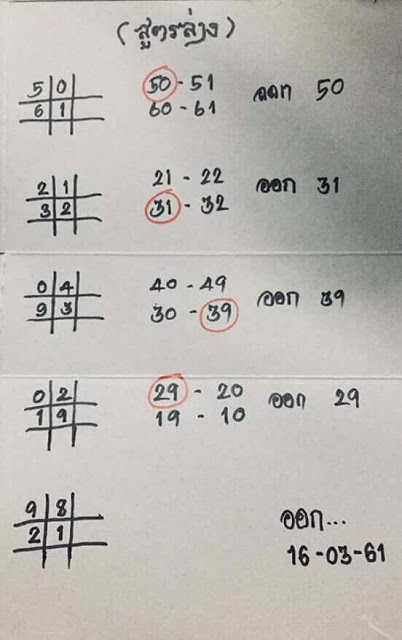 (สูตรล่าง)
5 0 50 - 51 ออก 50
6 1 60 - 61
2 1 21 - 22 ออก 31
3 2 31 - 32
0 4 40 - 49 ออก 39
9 3 30 - 39
0 2 29 - 20 ออก 29
1 9 19 - 10
9 8 ออก...
2 1 16-03-61